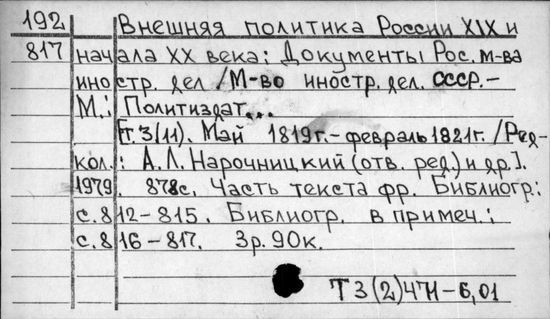 192 Внешняя политика России XIX и
817 начала XX века: Документы Рос. м-ва
иностр. дел / М-во иностр. дел. СССР.–
М.: Политиздат...
[т. 3(11). Май 1819г.– февраль 1821г. / Ред-
кол.: А.Л. Нарочницкий (отв. ред.) и др.].
1979. 878с. Часть текста фр. Библиогр:
с. 812–815. Библиогр. в примеч.:
с. 816–817. 3р. 90к.
Т3(2)47Н–6,01